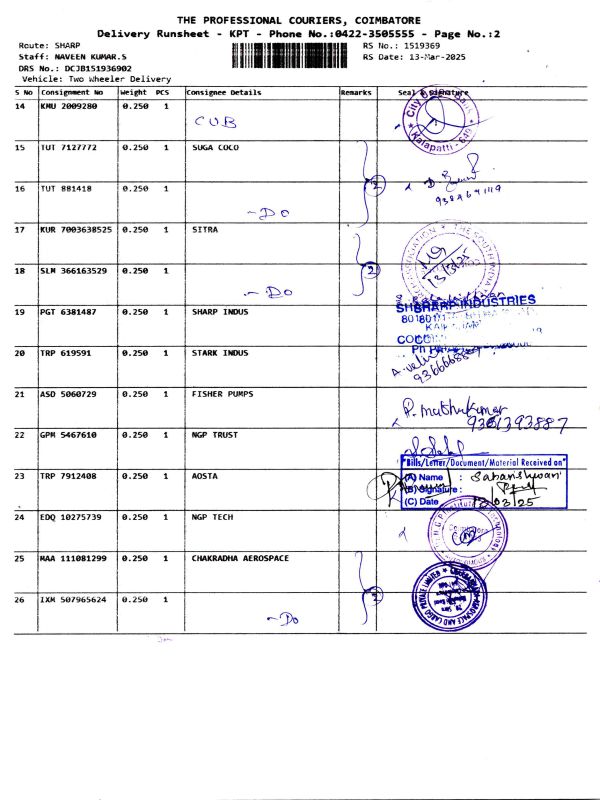 THE PROFESSIONAL COURIERS, COIMBATORE
Delivery Runsheet - KPT - Phone No.:0422-3505555 - Page No.:2
Route: SHARP
RS No.: 1519369
Staff: NAVEEN KUMAR.S
RS Date: 13-Mar-2025
DRS No.: DCJB151936902
Vehicle: Two Wheeler Delivery
S No Consignment No Weight PCS Consignee Details Remarks Seal & Signature
14 KMU 2009280 0.250 1 CUB
Kalapatti - 
15 TUT 7127772 0.250 1 SUGA COCO
16 TUT 881418 0.250 1 -DO 2
17 KUR 7003638525 0.250 1 SITRA
13/3/25
18 SLM 366163529 0.250 1 -DO 2
19 PGT 6381487 0.250 1 SHARP INDUS
SHARP INDUSTRIES
20 TRP 619591 0.250 1 STARK INDUS
21 ASD 5060729 0.250 1 FISHER PUMPS
P. mathukumar
9361393887
22 GPM 5467610 0.250 1 NGP TRUST
"Bills/Letter/Document/Material Received on"
23 TRP 7912408 0.250 1 AOSTA
(A) Name :
(B) Signature :
(C) Date
03/25
24 EDQ 10275739 0.250 1 NGP TECH
25 MAA 111081299 0.250 1 CHAKRADHA AEROSPACE
26 IXM 507965624 0.250 1 -DO 2